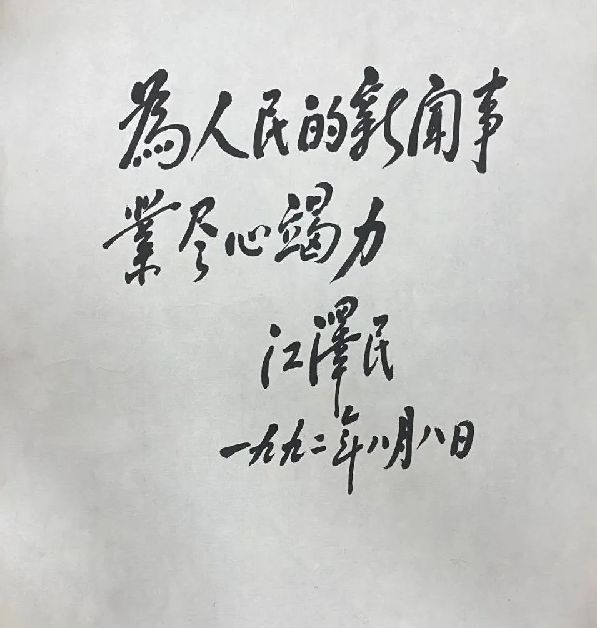 為人民的新闻事
業尽心竭力
江澤民
一九九二年八月八日